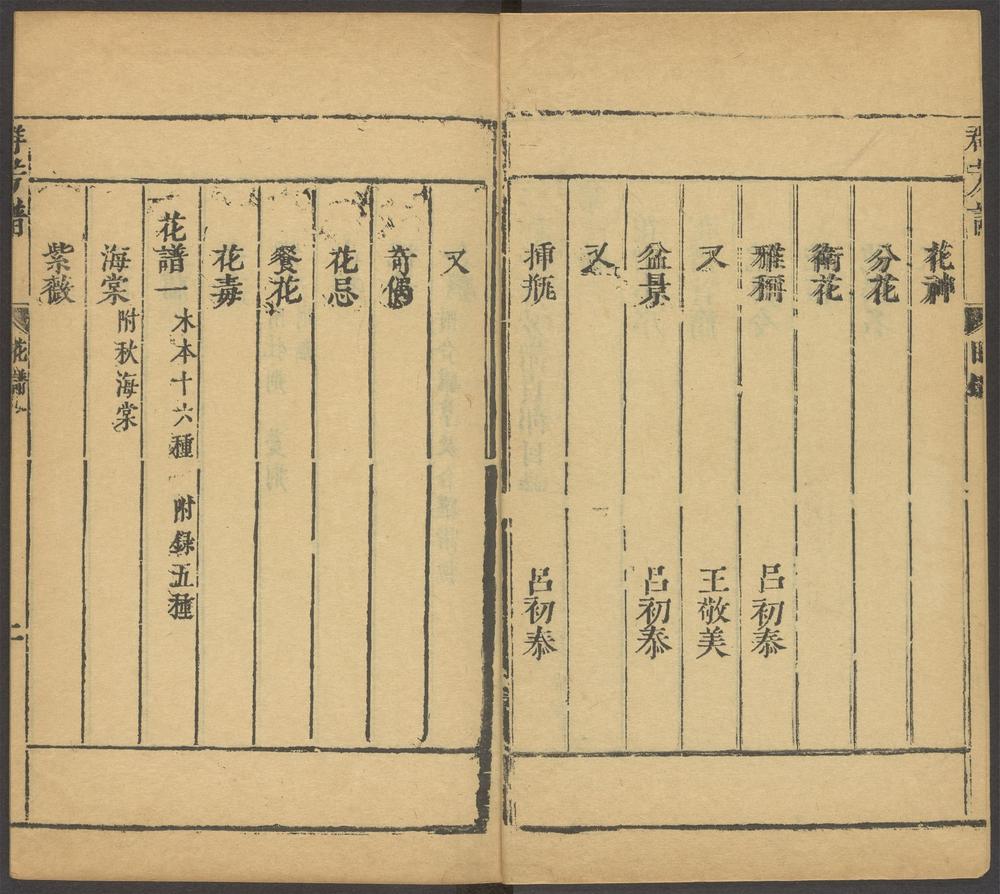 花神
分花
衛花
雅稱 呂初泰
又 王敬美
盆景 呂初泰
又
挿瓶 呂初泰
又
奇偶
花忌
餐花
花毒
花譜一 木本十六種 附録五種
海棠 附秋海棠
紫薇
群芳譜 花譜 二